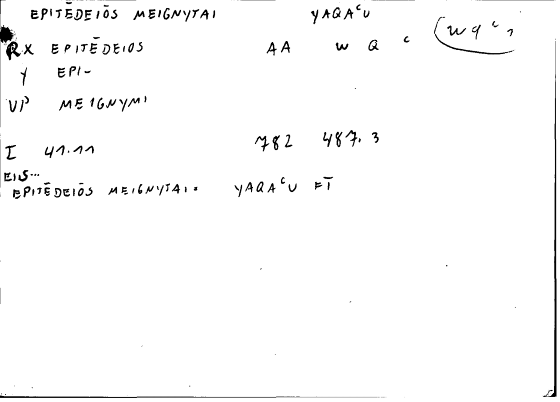 EPITĒDEIŌS MEIGNYTAI YAQAᶜU
RX EPITĒDEIOS AA W Q ᶜ (wqᶜ,
Y EPI-
VP MEIGNYMI
I 41.11 782 487.3
EIS...
EPITĒDEIŌS MEIGNYTAI. YAQAᶜU FĪ